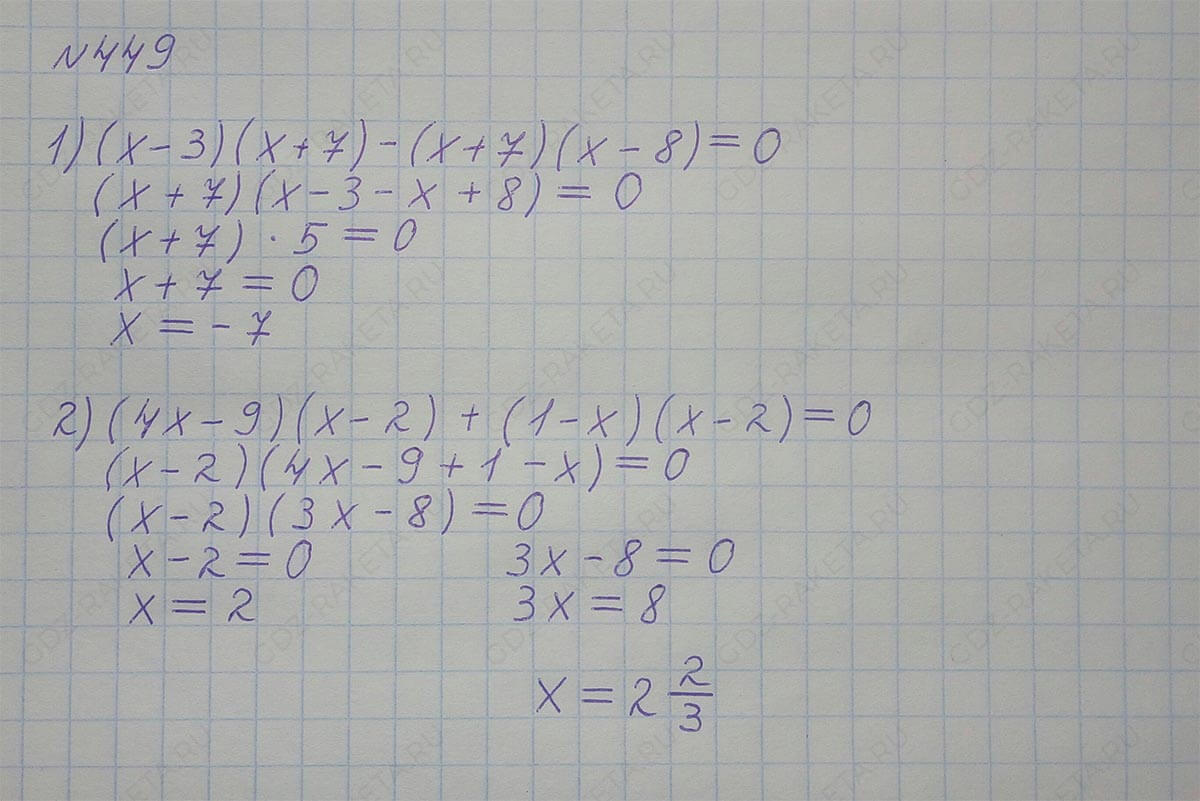 №449
1) (x-3)(x+7)-(x+7)(x-8)=0
(x+7)(x-3-x+8)=0
(x+7)·5=0
x+7=0
x=-7
2) (4x-9)(x-2)+(1-x)(x-2)=0
(x-2)(4x-9+1-x)=0
(x-2)(3x-8)=0
x-2=0 3x-8=0
x=2 3x=8
x=2 2/3
GDZ-RAKETA.RU